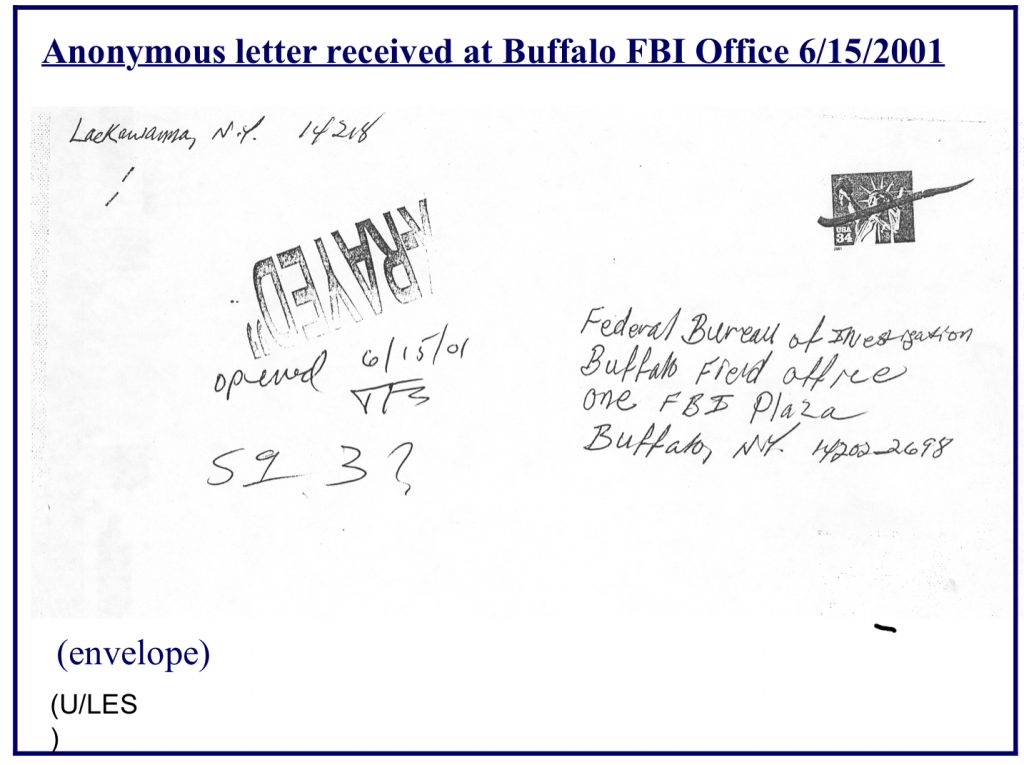 Anonymous letter received at Buffalo FBI Office 6/15/2001
Lackawanna, N.Y. 14218
"X-RAYED"
USA
34
opened 6/15/01
Federal Bureau of Investigation
Buffalo Field office
one FBI Plaza
Buffalo, NY. 14202-2698
(envelope)
(U/LES
)